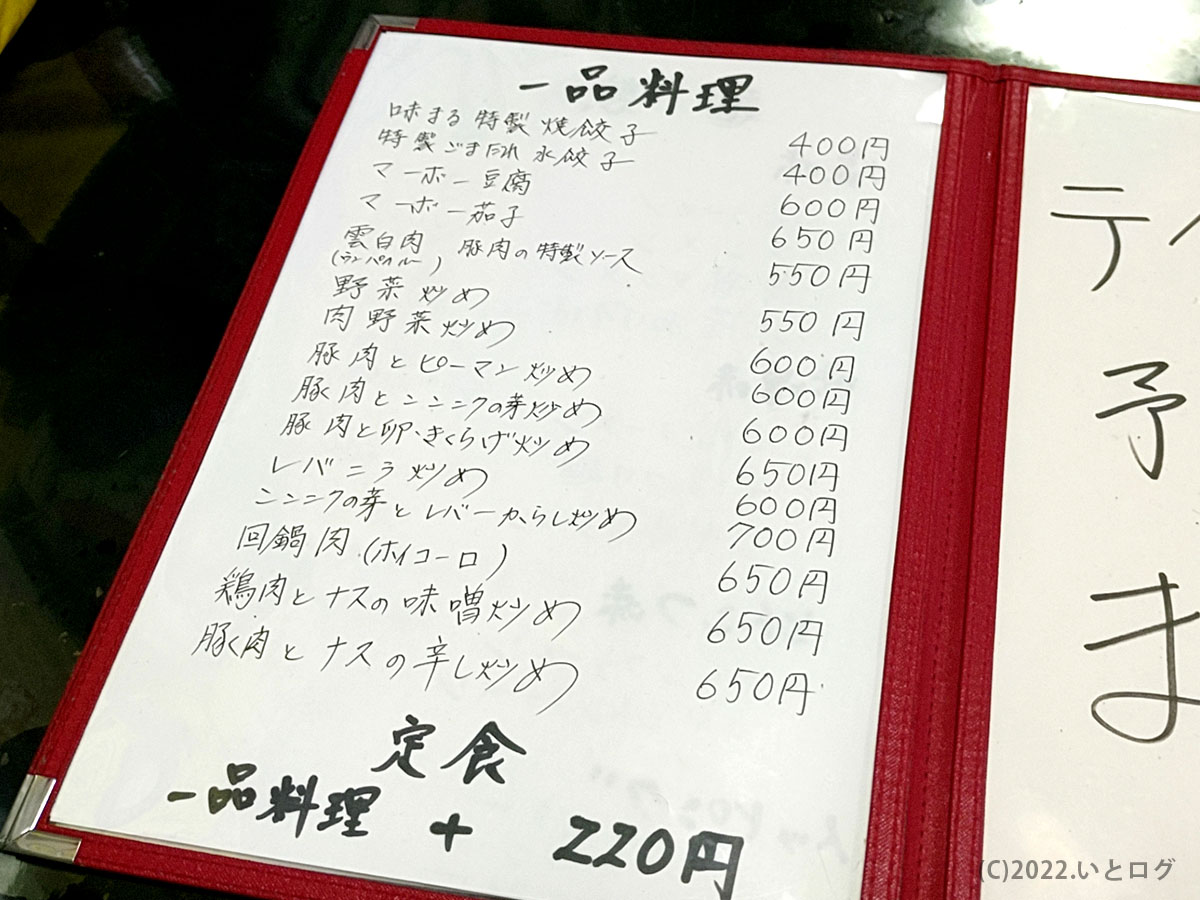 一品料理
味まる 特製 焼餃子 400円
特製ごまだれ 水餃子 400円
マーボー豆腐 600円
マーボー茄子 650円
雲白肉 豚肉の特製ソース 550円
(ウンパイルー)
野菜炒め 550円
肉野菜炒め 600円
豚肉とピーマン炒め 600円
豚肉とニンニクの芽炒め 600円
豚肉と卵、きくらげ炒め 650円
レバニラ炒め 600円
ニンニクの芽とレバーからし炒め 700円
回鍋肉(ホイコーロ) 650円
鶏肉とナスの味噌炒め 650円
豚肉とナスの辛し炒め 650円
定食
一品料理 + 220円
テ
予
ま
(C)2022.いとログ